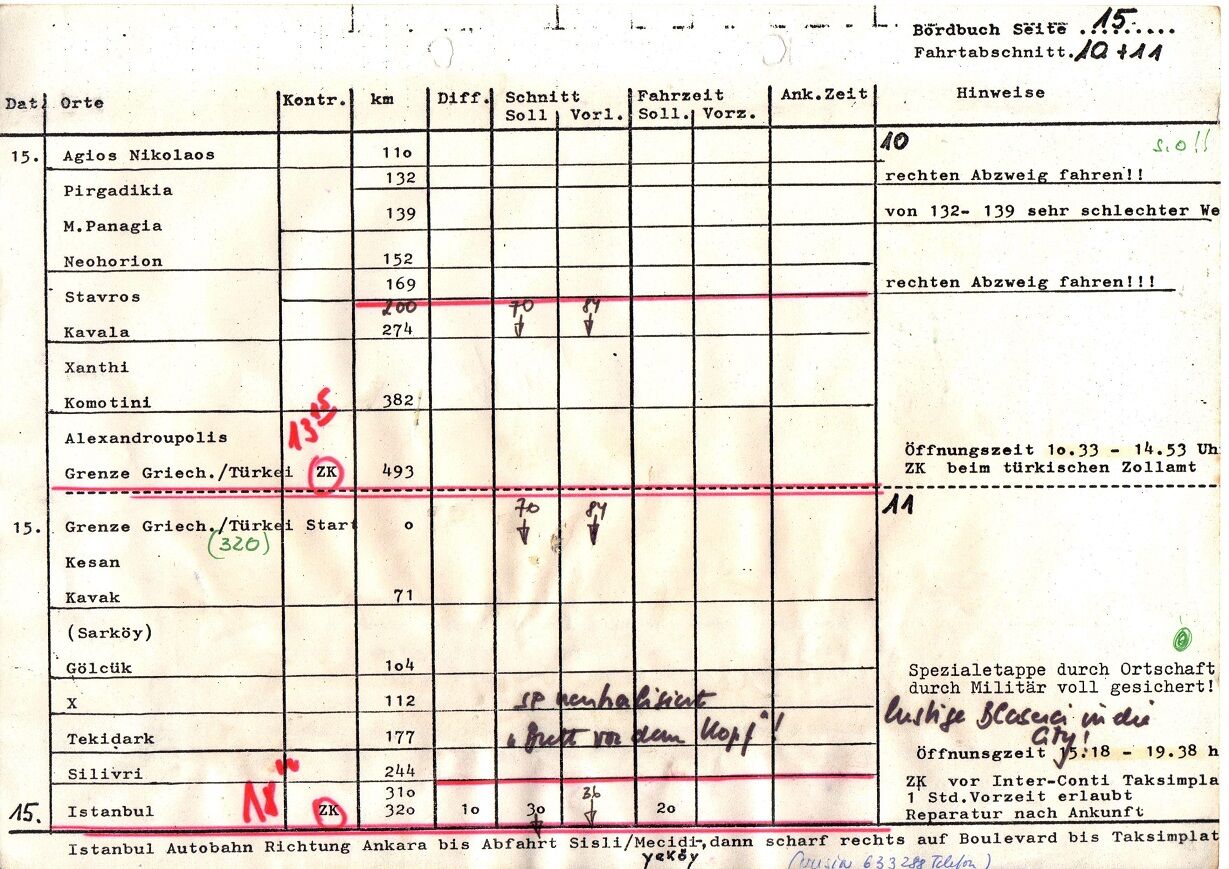 Bordbuch Seite 15
Fahrtabschnitt. 10 + 11
Dat. Orte Kontr. km Diff. Schnitt Fahrzeit Ank.Zeit Hinweise
Soll Vorl. Soll. Vorz.
10 S.O!!
15. Agios Nikolaos 11o
Pirgadikia 132 rechten Abzweig fahren!!
M.Panagia 139 von 132- 139 sehr schlechter We
Neohorion 152
Stavros 169 rechten Abzweig fahren!!!
200 70 84
Kavala 274
Xanthi
Komotini 382
13 15
Alexandroupolis
Öffnungszeit 1o.33 - 14.53 Uh
Grenze Griech./Türkei ZK 493 ZK beim türkischen Zollamt
11
70 84
15. Grenze Griech./Türkei Start o
(320)
Kesan
Kavak 71
(Sarköy)
Gölcük 1o4 Spezialetappe durch Ortschaft
durch Militär voll gesichert!
X 112 SP neutralisiert
lustige Blaserei in die
City!
Tekidark 177 "Brett vor dem Kopf"!
Öffnunsgzeit 15:18 - 19.38 h
Silivri 244
ZK vor Inter-Conti Taksimpla
31o 36
1 Std.Vorzeit erlaubt
18
15. Istanbul ZK 32o 1o 3o 2o Reparatur nach Ankunft
Istanbul Autobahn Richtung Ankara bis Abfahrt Sisli/Mecidi-,dann scharf rechts auf Boulevard bis Taksimplat
yeköy
633288 Telefon)